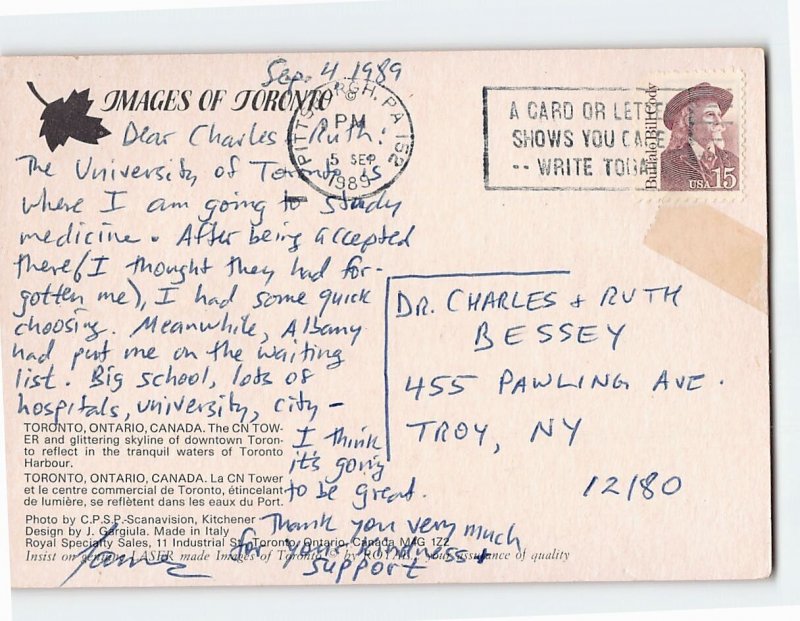 Sep. 4 1989
IMAGES OF TORONTO
Dear Charles + Ruth!
The University of Toronto is
where I am going to study
medicine. After being accepted
there (I thought they had for-
gotten me), I had some quick
choosing. Meanwhile, Albany
had put me on the waiting
list. Big school, lots of
hospitals, university, city –
I think
it's going
to be great.
Thank you very much
for your kindness +
support
TORONTO, ONTARIO, CANADA. The CN TOW-
ER and glittering skyline of downtown Toron-
to reflect in the tranquil waters of Toronto
Harbour.
TORONTO, ONTARIO, CANADA. La CN Tower
et le centre commercial de Toronto, étincelant
de lumière, se reflètent dans les eaux du Port.
Photo by C.P.S.P.-Scanavision, Kitchener
Design by J. Gargiula. Made in Italy
Royal Specialty Sales, 11 Industrial St., Toronto, Ontario, Canada M4G 1Z2
Insist on genuine LASER made Images of Toronto © by ROYAL, your assurance of quality
PITTSBURGH, PA 152
PM
5 SEP
1989
A CARD OR LETTE
SHOWS YOU CARE
-- WRITE TODA
Buffalo Bill Cody
USA 15
DR. CHARLES + RUTH
BESSEY
455 PAWLING AVE.
TROY, NY
12180